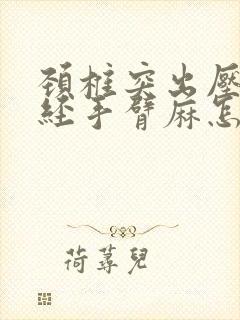 頚椎突出壓
經手臂麻怎
荷蕁兒